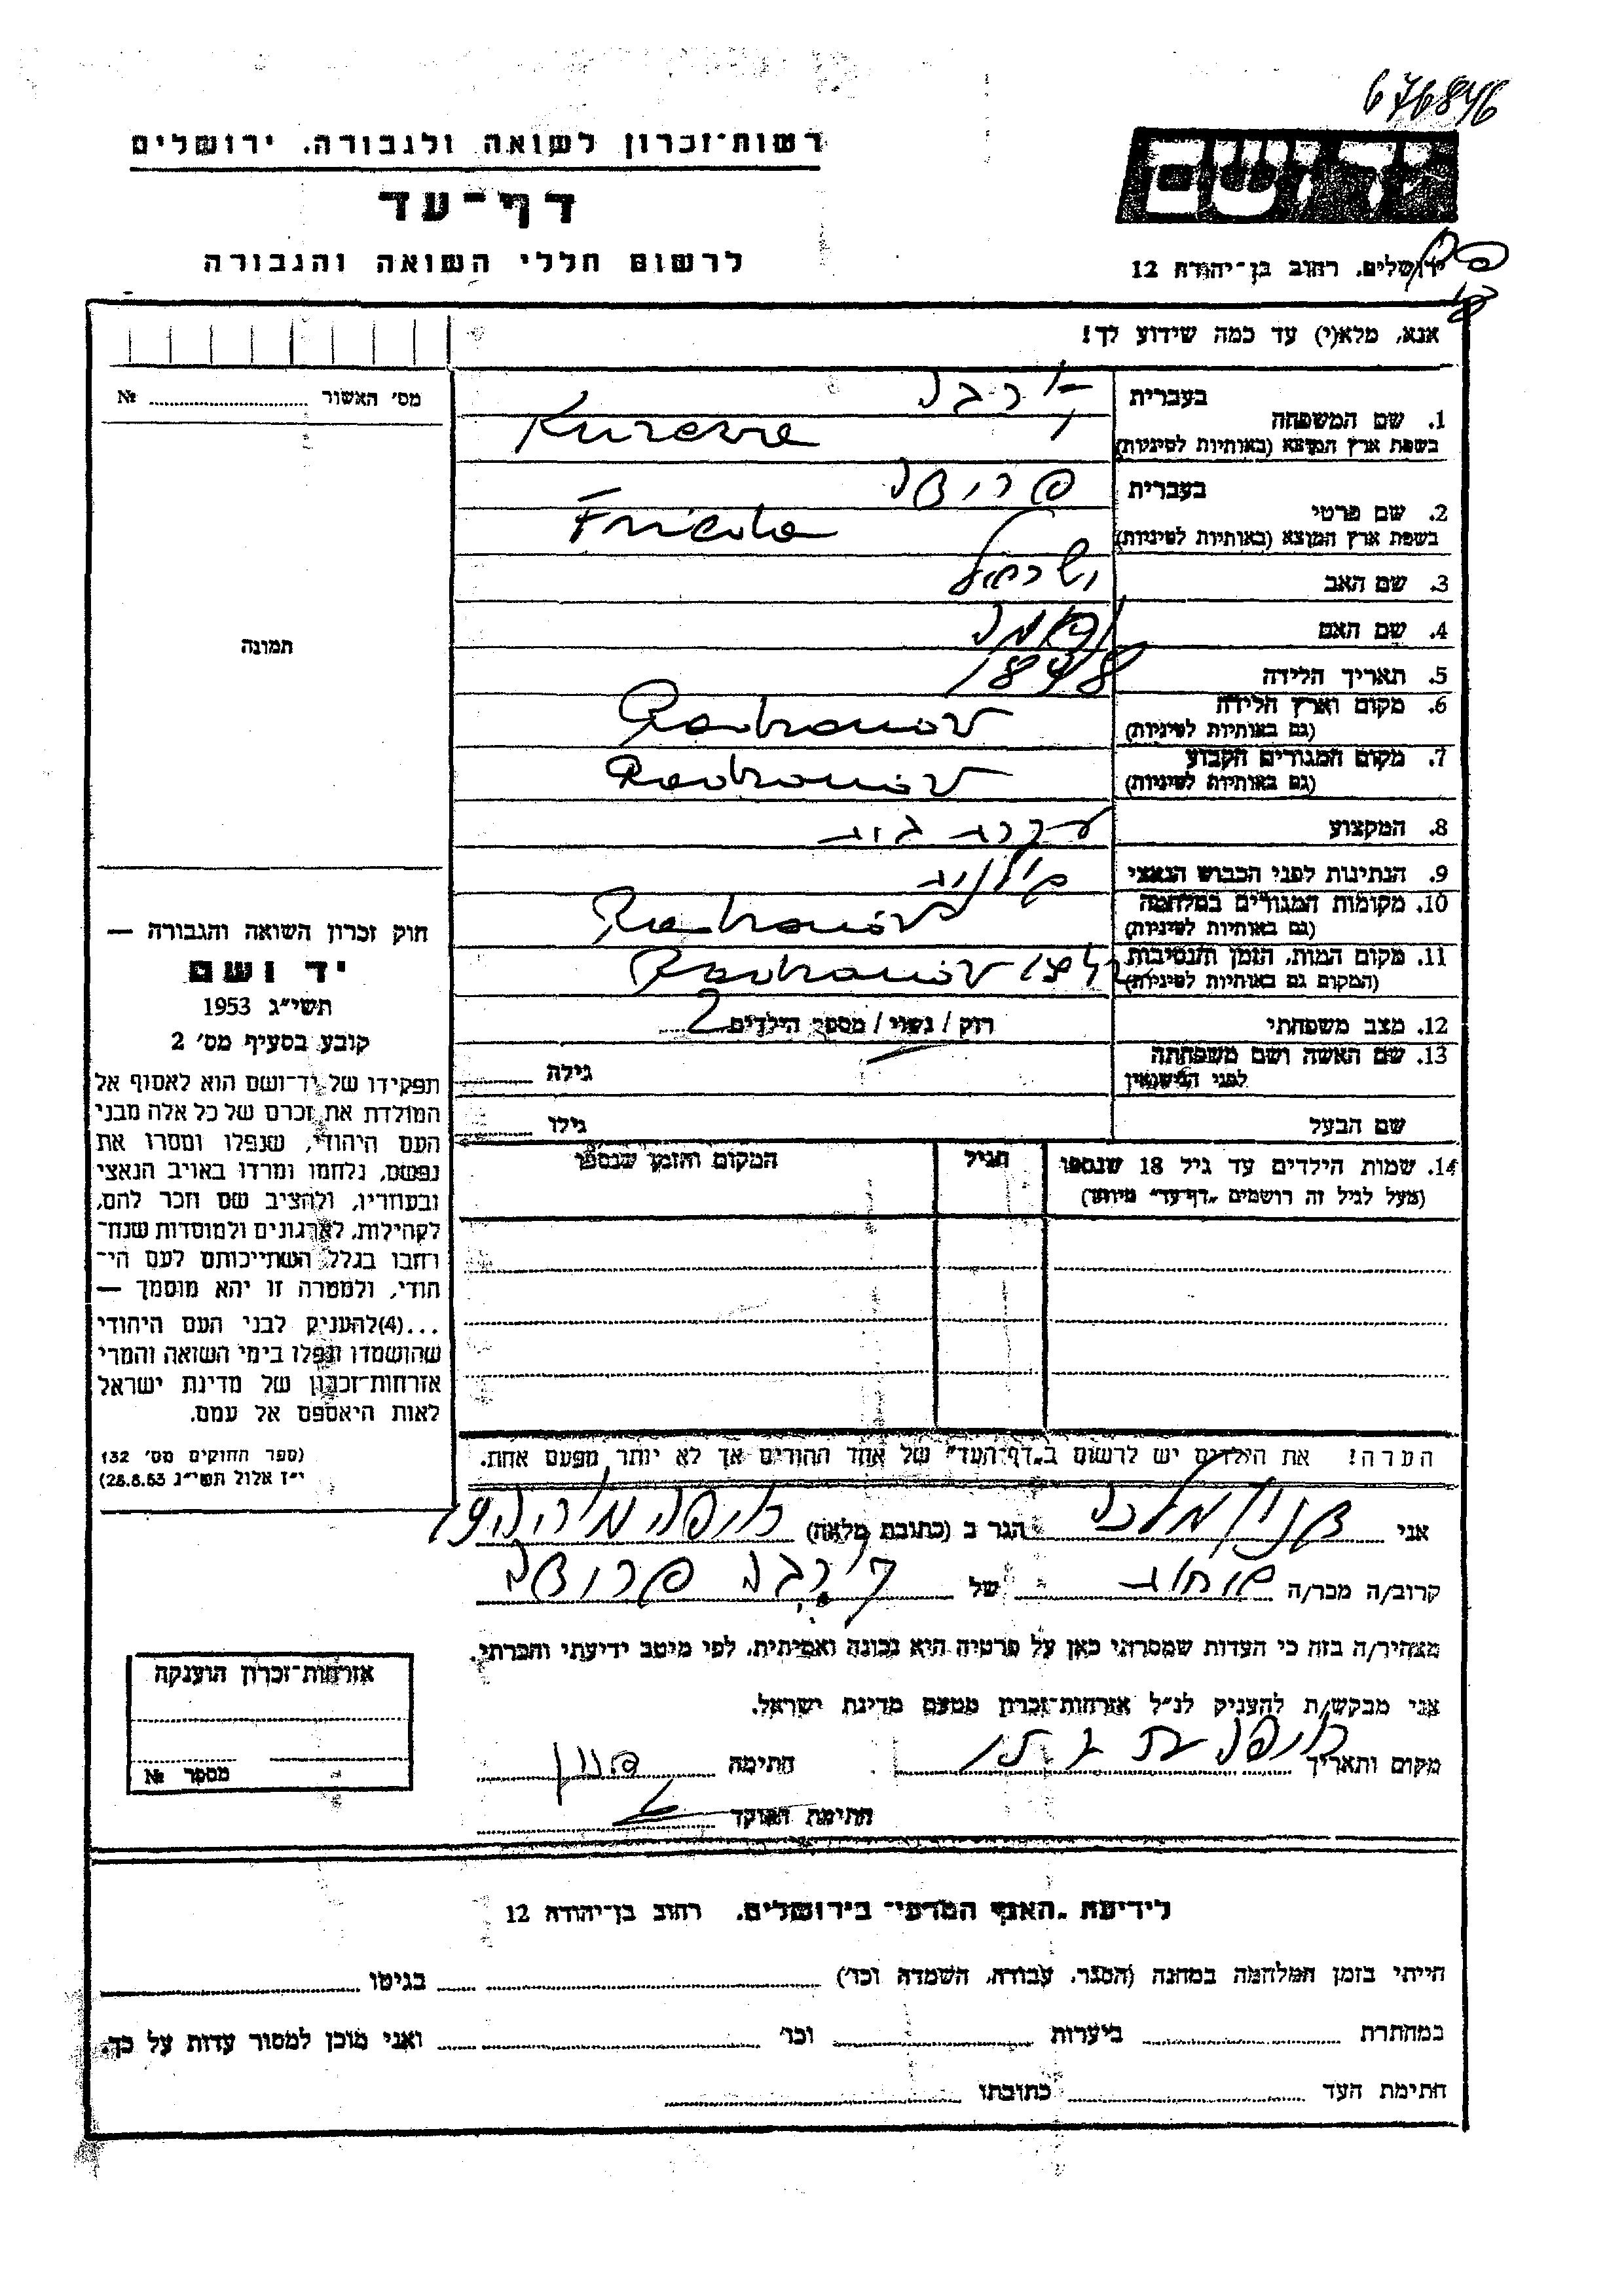 676846
יד ושם
רשות־זכרון לשואה ולגבורה, ירושלים
דף־עד
לרשום חללי השואה והגבורה
ירושלים, רחוב בן־יהודה 12
אנא, מלא(י) עד כמה שידוע לך!
מס׳ האשור № 
תמונה
חוק זכרון השואה והגבורה —
יד ושם
תשי״ג 1953
קובע בסעיף מס׳ 2
תפקידו של יד־ושם הוא לאסוף אל
המולדת את זכרם של כל אלה מבני
העם היהודי, שנפלו ומסרו את
נפשם, נלחמו ומרדו באויב הנאצי
ובעוזריו, ולהציב שם וזכר להם,
לקהילות, לארגונים ולמוסדות שנח־
רחבו בגלל השתייכותם לעם הי־
הודי, ולמטרה זו יהא מוסמך —
...(4)להעניק לבני העם היהודי
שהושמדו ונפלו בימי השואה והמרי
אזרחות־זכרון של מדינת ישראל
לאות היאספם אל עמם.
(ספר החוקים מס׳ 132
י״ז אלול תשי״ג 28.8.53)
1. שם המשפחה
בעברית
בשפת ארץ המוצא (באותיות לטיניות)
2. שם פרטי
בעברית
בשפת ארץ המוצא (באותיות לטיניות)
3. שם האב ישראל
4. שם האם
5. תאריך הלידה 1898
6. מקום וארץ הלידה
(גם באותיות לטיניות) Radhanów
7. מקום המגורים הקבוע
(גם באותיות לטיניות) Radhanów
8. המקצוע עקרת בית
9. הנתינות לפני הכבוש הנאצי פולנית
10. מקומות המגורים במלחמה
(גם באותיות לטיניות) Radhanów
11. מקום המות, הזמן והנסיבות
(המקום גם באותיות לטיניות) Radhanów
12. מצב משפחתי רוק / נשוי / מספר הילדים 2
13. שם האשה ושם משפחתה
לפני הנישואין גילה
שם הבעל גילו
14. שמות הילדים עד גיל 18 שנספו
(מעל לגיל זה רושמים „דף־עד״ מיוחד)
הגיל
המקום והזמן שנספו
הערה! את הילדים יש לרשום ב„דף־העד״ של אחד ההורים אך לא יותר מפעם אחת.
אני מלכה הגר ב (כתובת מלאה) חיפה
קרוב/ה מכר/ה של
מצהיר/ה בזה כי העדות שמסרתי כאן על פרטיה היא נכונה ואמיתית, לפי מיטב ידיעתי והכרתי.
אני מבקש/ת להעניק לנ״ל אזרחות־זכרון מטעם מדינת ישראל.
מקום ותאריך חיפה חתימה
חתימת הפוקד
אזרחות־זכרון הוענקה
מספר №
לידיעת „האגף המדעי״ בירושלים, רחוב בן־יהודה 12
הייתי בזמן המלחמה במחנה (הסגר, עבודה, השמדה וכו׳) בגיטו
במחתרת ביערות וכו׳ ואני מוכן למסור עדות על כך.
חתימת העד כתובתו